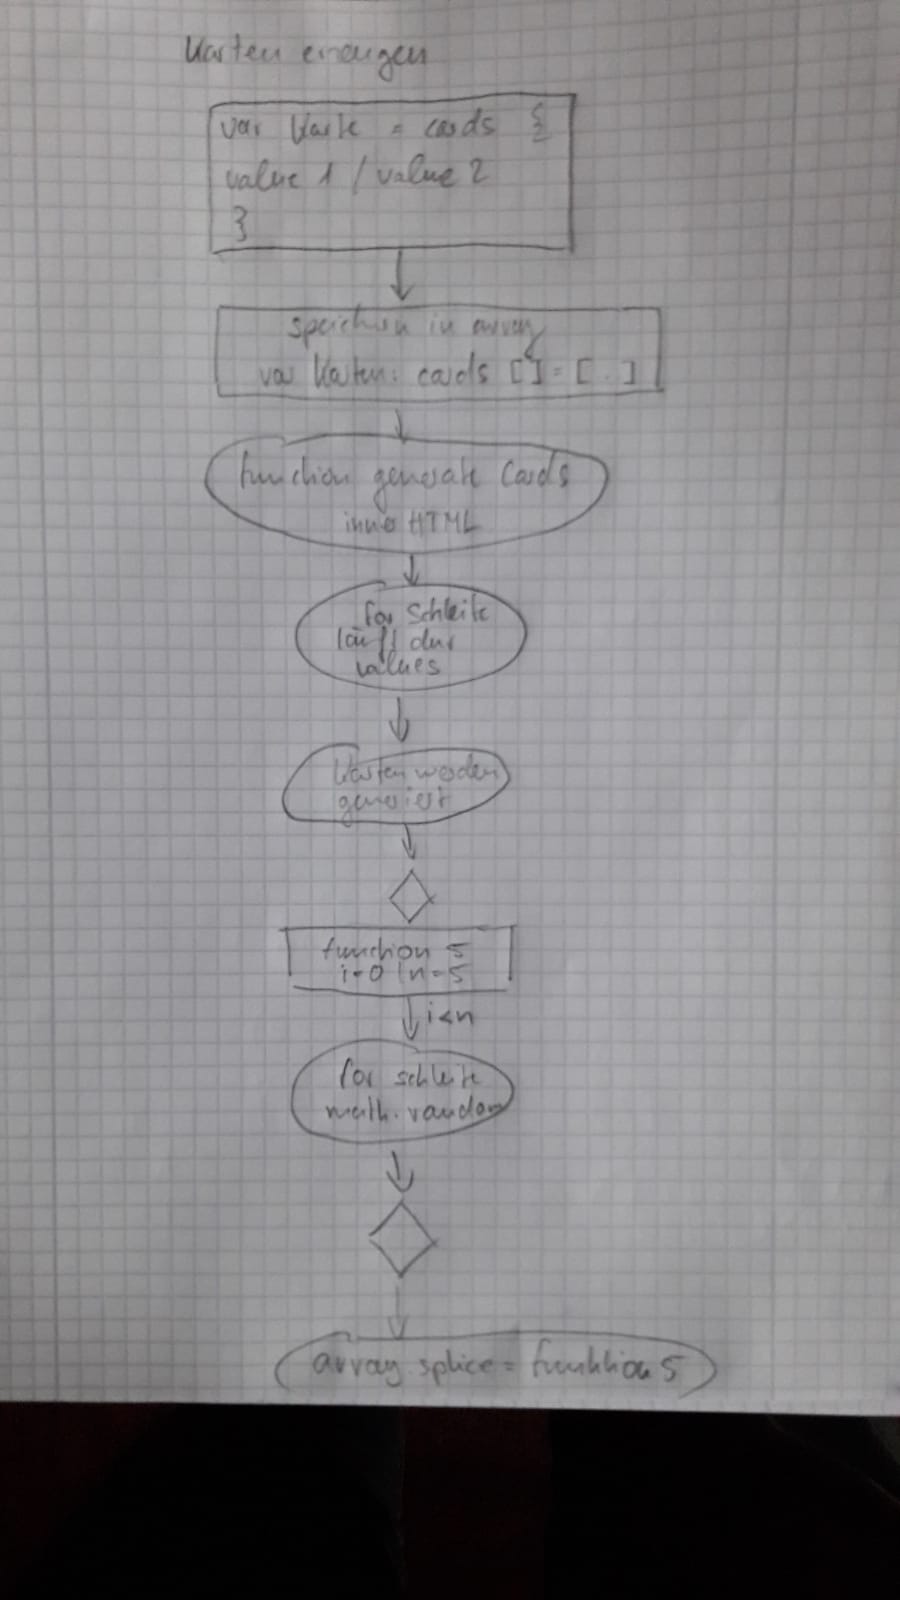 Karten erzeugen
var Karte = cards {
value 1 / value 2
}
speichern in array
var Karten: cards [] = [ . ]
function generate Cards
inner HTML
for Schleife
läuft dur
values
Karten werden
generiert
function 5
i=0 | n=5
i<n
for schleife
math.random
array.splice = funktion 5